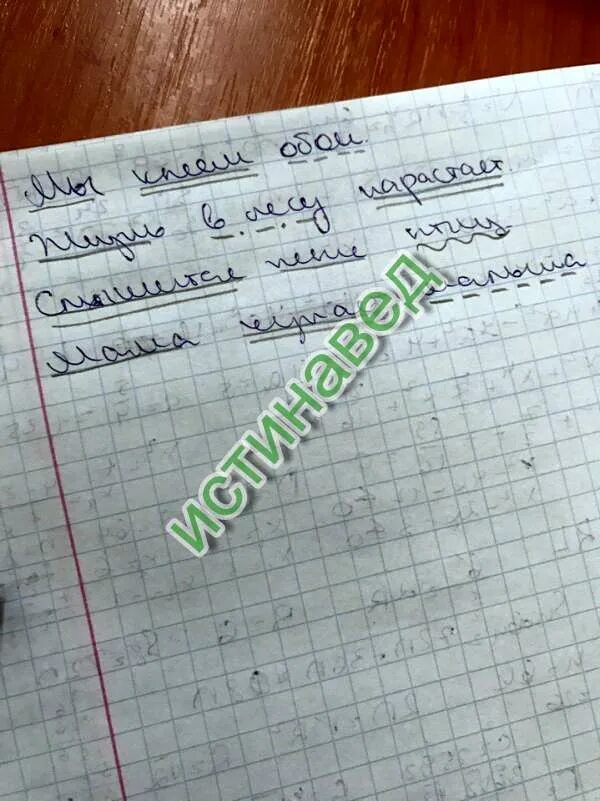 Мы клеем обои.
Жизнь в лесу нарастает.
Слышится пение птиц
Мама малыша
ИСТИНАВЕД